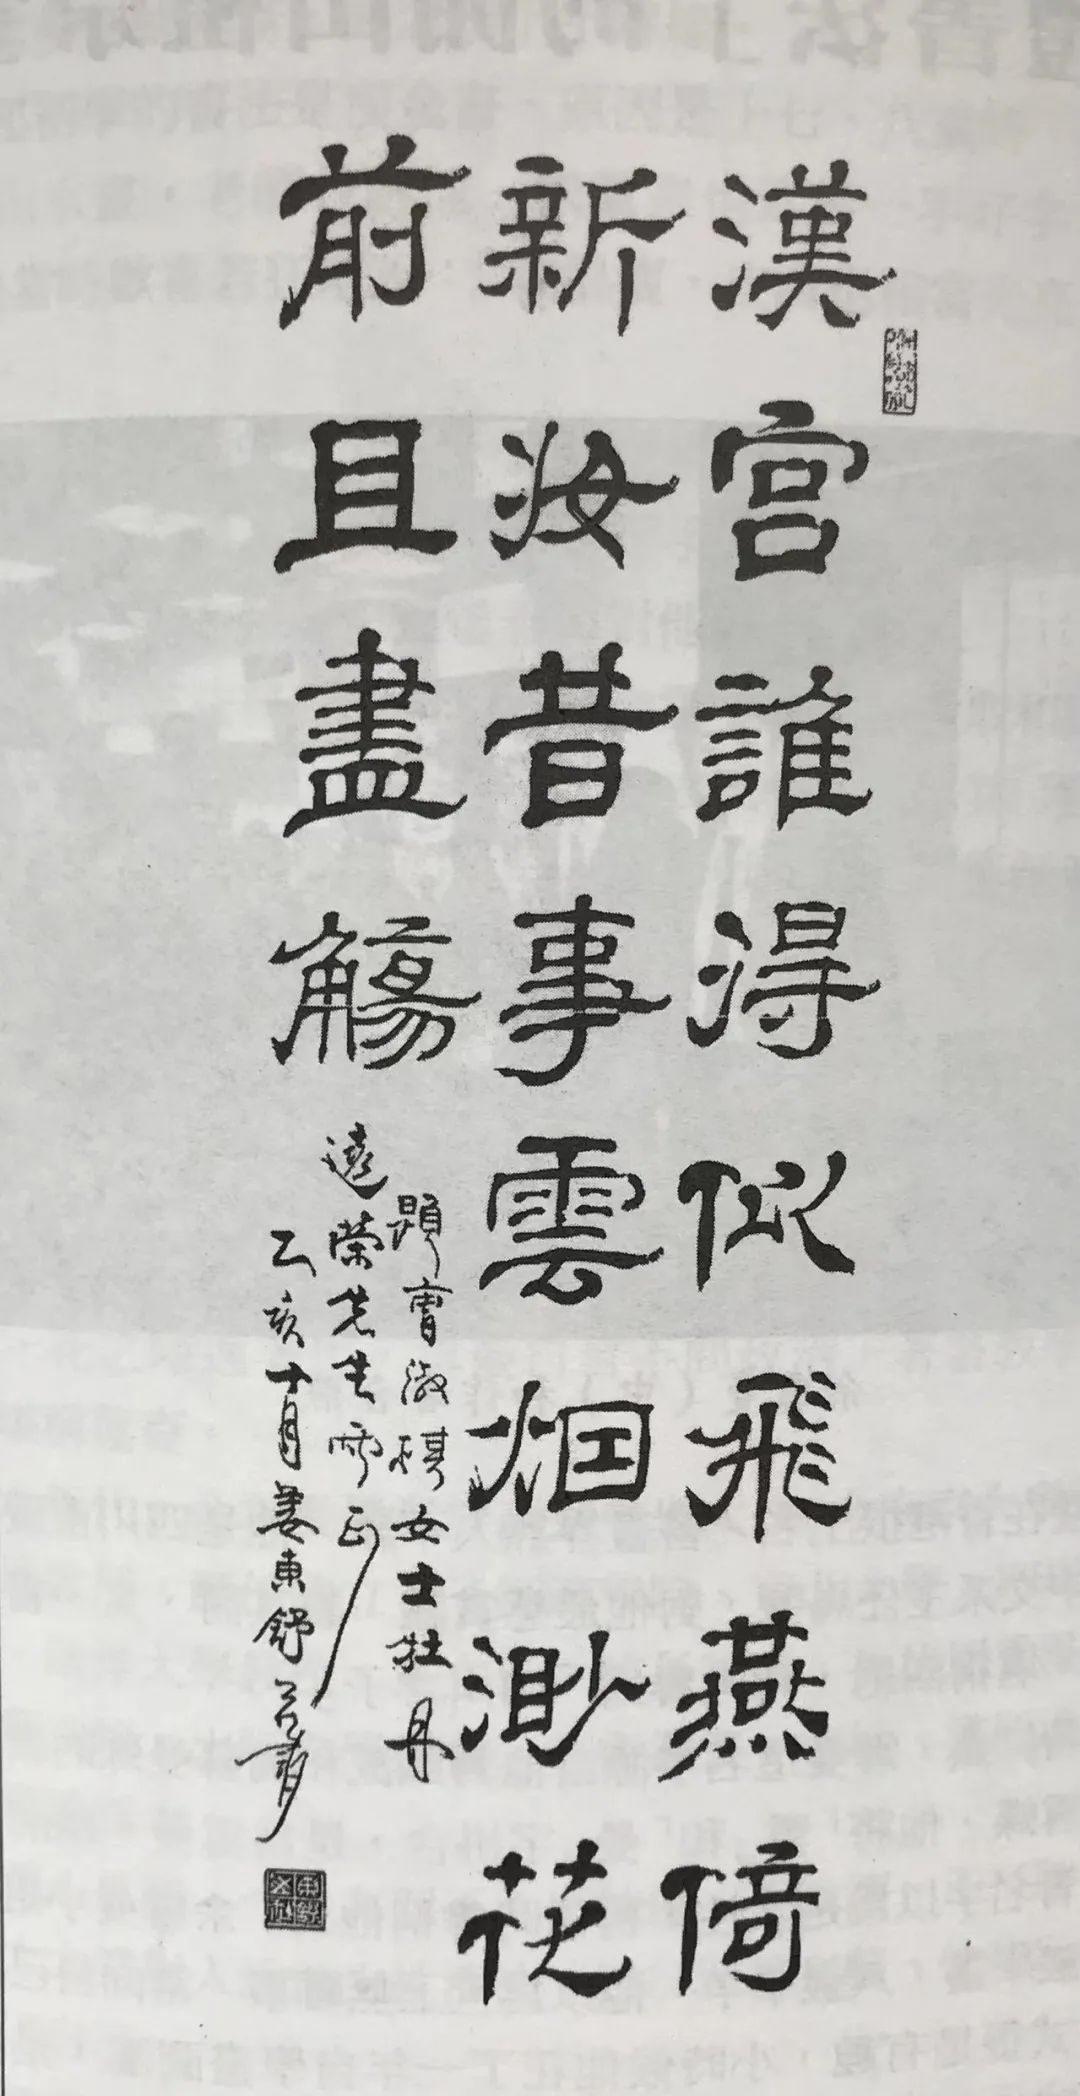 漢宮誰得似飛燕倚
新妝昔事雲烟渺花
前且盡觴
題曾淑棋女士牡丹
遠荣先生雨正
乙亥十月姜東舒并書